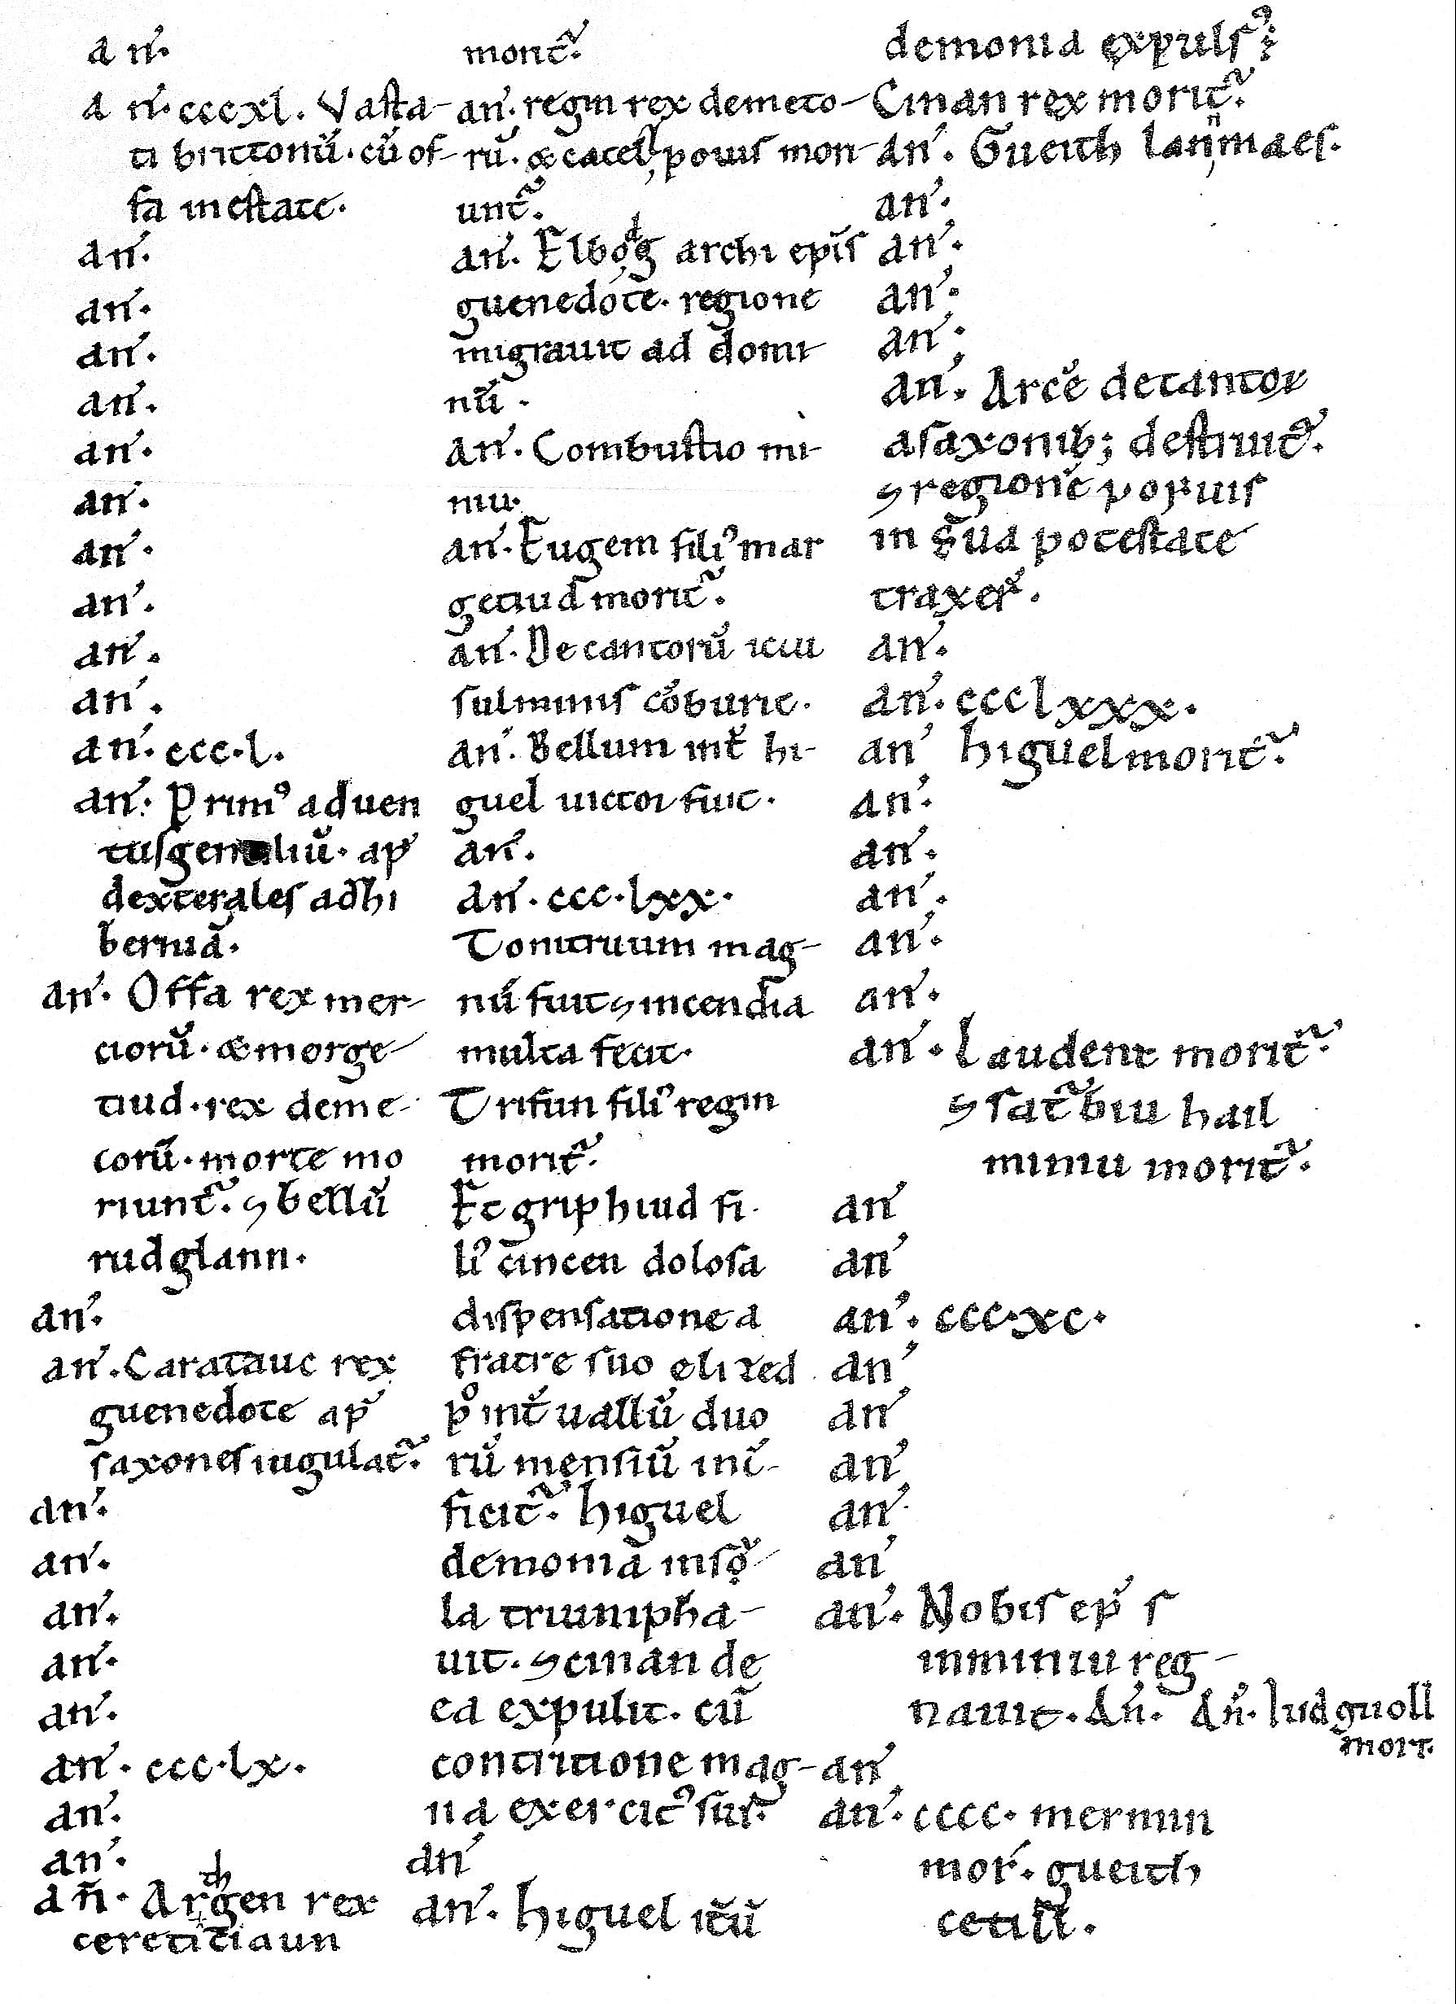 an̄.
an̄. cccxl. Vasta-
ti brittonū. cū of-
fa in estate.
an̄.
an̄.
an̄.
an̄.
an̄.
an̄.
an̄.
an̄.
an̄.
an̄.
an̄. ccc.l.
an̄. Primꝰ aduen
tus gentiliū. ap̄
dexterales ad hi
berniā.
an̄. Offa rex mer-
ciorū. & morge-
tiud. rex deme-
torū. morte mo
riunt᷑. ⁊ bellū
rudglann.
an̄.
an̄. Caratauc rex
guenedote ap̄
saxones iugulat᷑.
an̄.
an̄.
an̄.
an̄.
an̄.
an̄. ccc.lx.
an̄.
an̄.
an̄. Arthgen rex
cereticiaun
morit᷑.
an̄. regin rex demeto-
rū. & catell, pouis mori-
unt᷑.
an̄. Elbodg archi ep̄is
guenedote. regione
migrauit ad domi
nū.
an̄. Combustio mi-
niu.
an̄. Eugem filiꝰ mar
getiud morit᷑.
an̄. Decantorū ictu
fulminis cōburit᷑.
an̄. Bellum int̄ hi-
guel uictor fuit.
an̄.
an̄. ccc.lxx.
Tonitruum mag-
nū fuit ⁊ incendia
multa fecit.
Trifun filiꝰ regin
morit᷑.
Et griphiud fi.
liꝰ cincen dolosa
dispensatione a
fratre suo elized
pꝰ int̄uallū duo
rū mensiū int̄-
ficit᷑. higuel
demonia insu
la triumpha-
uit. ⁊ cinan de
ea expulit. cū
contritione mag-
na exercitꝰ sui.
an̄
an̄. higuel it̄ū
demonia expulsꝰ;
Cinan rex morit᷑.
an̄. Gueith lannmaes.
an̄.
an̄.
an̄.
an̄.
an̄. Arcē decantor
a saxonib; destruit᷑.
⁊ regionē poyuis
in sua potestate
traxer̄.
an̄.
an̄. ccclxxx.
an̄ higuel morit᷑.
an̄.
an̄.
an̄.
an̄.
an̄.
an̄. laudent morit᷑.
⁊ sat᷑biu hail
miniu morit᷑.
an̄
an̄
an̄. ccc.xc.
an̄
an̄
an̄
an̄
an̄
an̄. Nobis ep̄s
in miniu reg-
nauit. An̄. An̄. Iudguoll
mort.
an̄
an̄. cccc. mermin
mor̄. gueith
cetill.